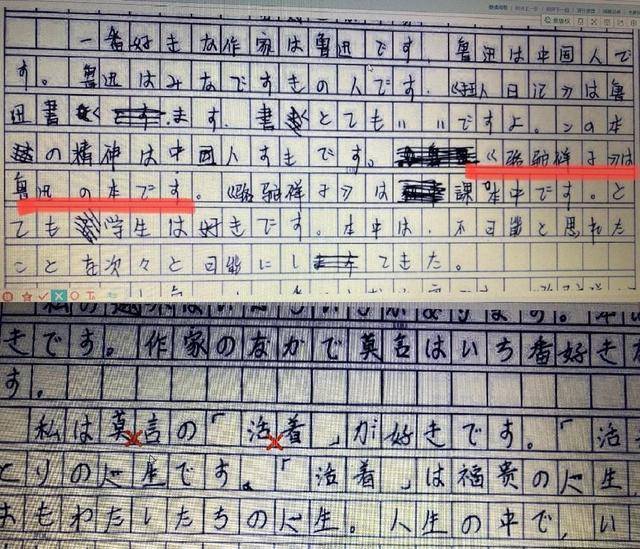 一番好きな作家は魯迅です。魯迅は中国人で
す。魯迅はみなですきの人です。《狂人日记》は魯
迅書く ます。書くとても いいですよ。この本
の精神は中国人すもです。《骆驼祥子》は
魯迅の本です。《骆驼祥子》は 課本中です。と
ても 学生は好きです。本中は、不可能と思れた
ことを次々と可能にし てきた。
きです。作家のなかで莫言はいち番好き
す。
私は莫言の「活着」が好きです。「活
とりの人生です。「活着」は福贵の人生
おもわたしたちの人生。人生の中で、い